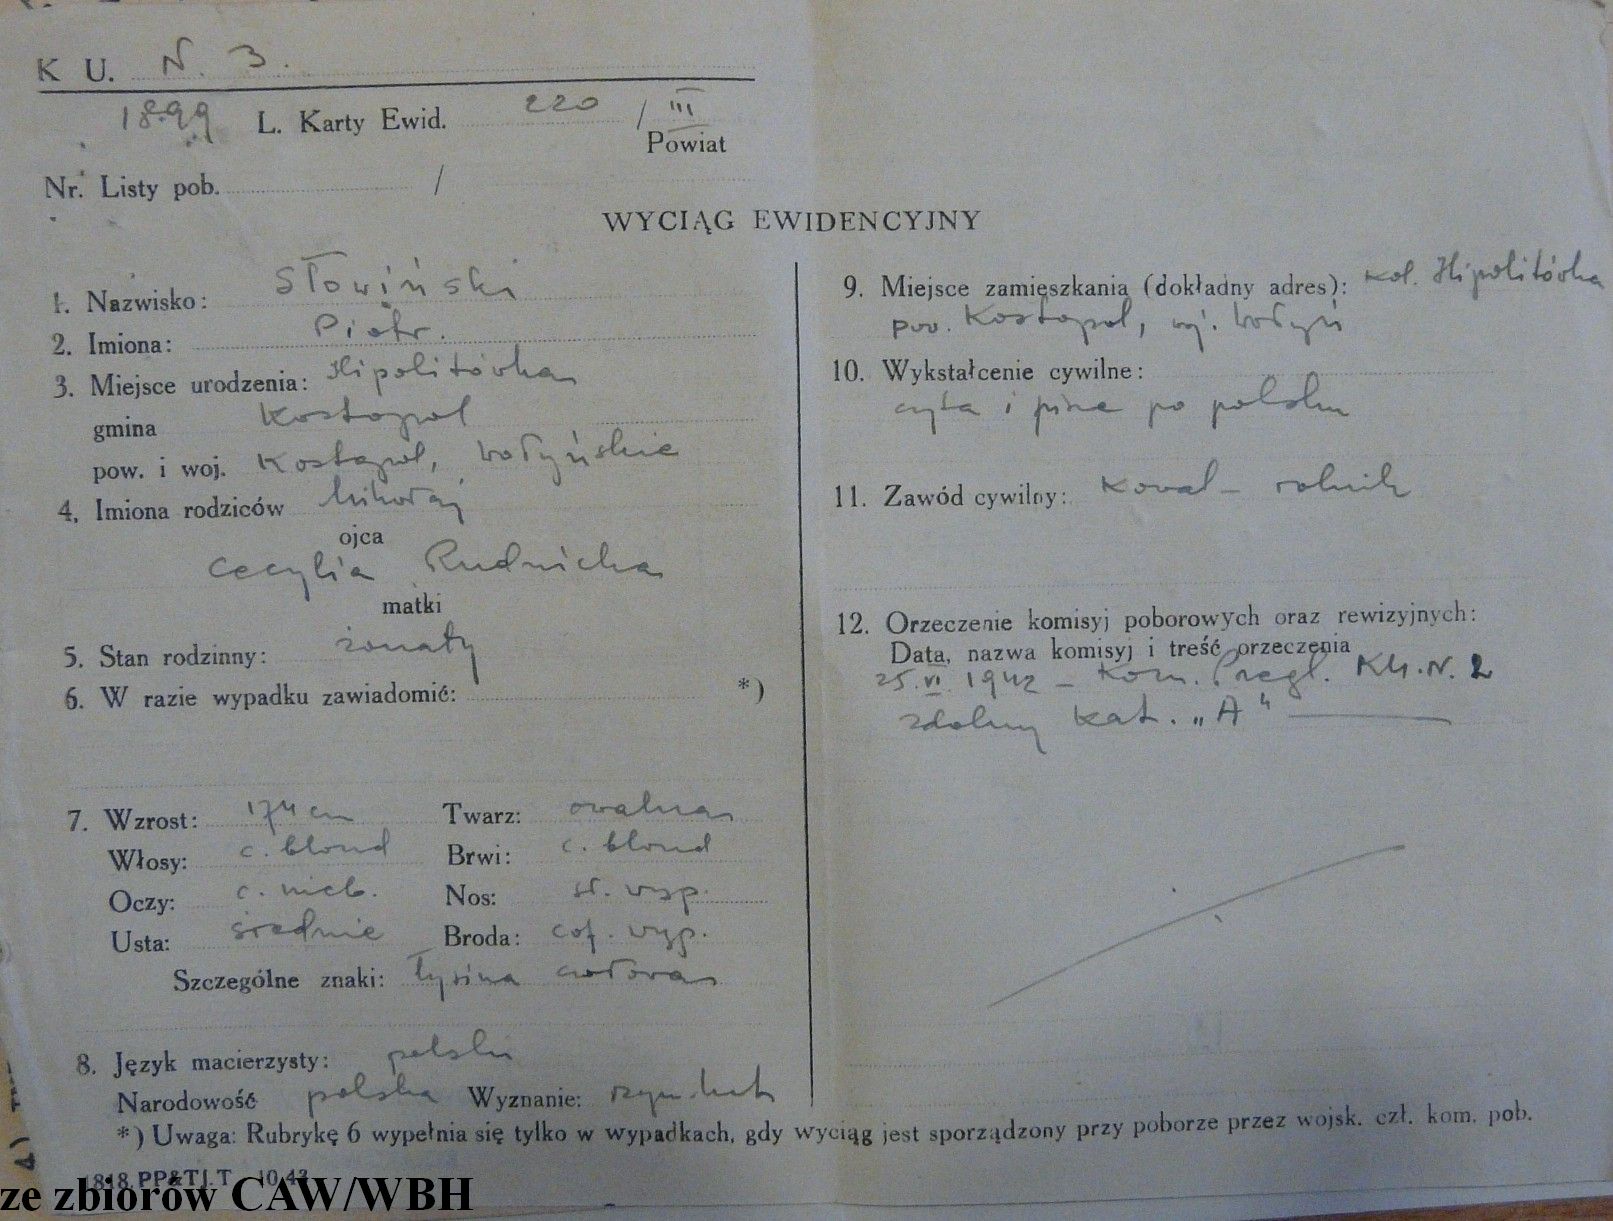 K U. N. 3.
1899 L. Karty Ewid. 220 / III
Powiat
Nr. Listy pob. /
WYCIĄG EWIDENCYJNY
1. Nazwisko: Słowiński
2. Imiona: Piotr.
3. Miejsce urodzenia: Hipolitówka
gmina Kostopol
pow. i woj. Kostopol, Wołyńskie
4. Imiona rodziców Mikołaj
ojca
Cecylia Rudnicka
matki
5. Stan rodzinny: żonaty
6. W razie wypadku zawiadomić: *)
7. Wzrost: 174 cm Twarz: owalna
Włosy: c. blond Brwi: c. blond
Oczy: c. nieb. Nos: śr. wyp.
Usta: średnie Broda: cof. wyp.
Szczególne znaki: łysina czołowa
8. Język macierzysty: polski
Narodowość polska Wyznanie: rzym. kat
9. Miejsce zamieszkania (dokładny adres): kol. Hipolitówka
pow. Kostopol, woj. Wołyń
10. Wykształcenie cywilne:
czyta i pisze po polsku
11. Zawód cywilny: kowal - rolnik
12. Orzeczenie komisyj poborowych oraz rewizyjnych:
Data, nazwa komisyj i treść orzeczenia
25.VI.1942 - Kom. Przegl. KU.N. 2
zdolny kat. „A"
*) Uwaga: Rubrykę 6 wypełnia się tylko w wypadkach, gdy wyciąg jest sporządzony przy poborze przez wojsk. czł. kom. pob.
1818.PP&TJ.T 10,43
ze zbiorów CAW/WBH